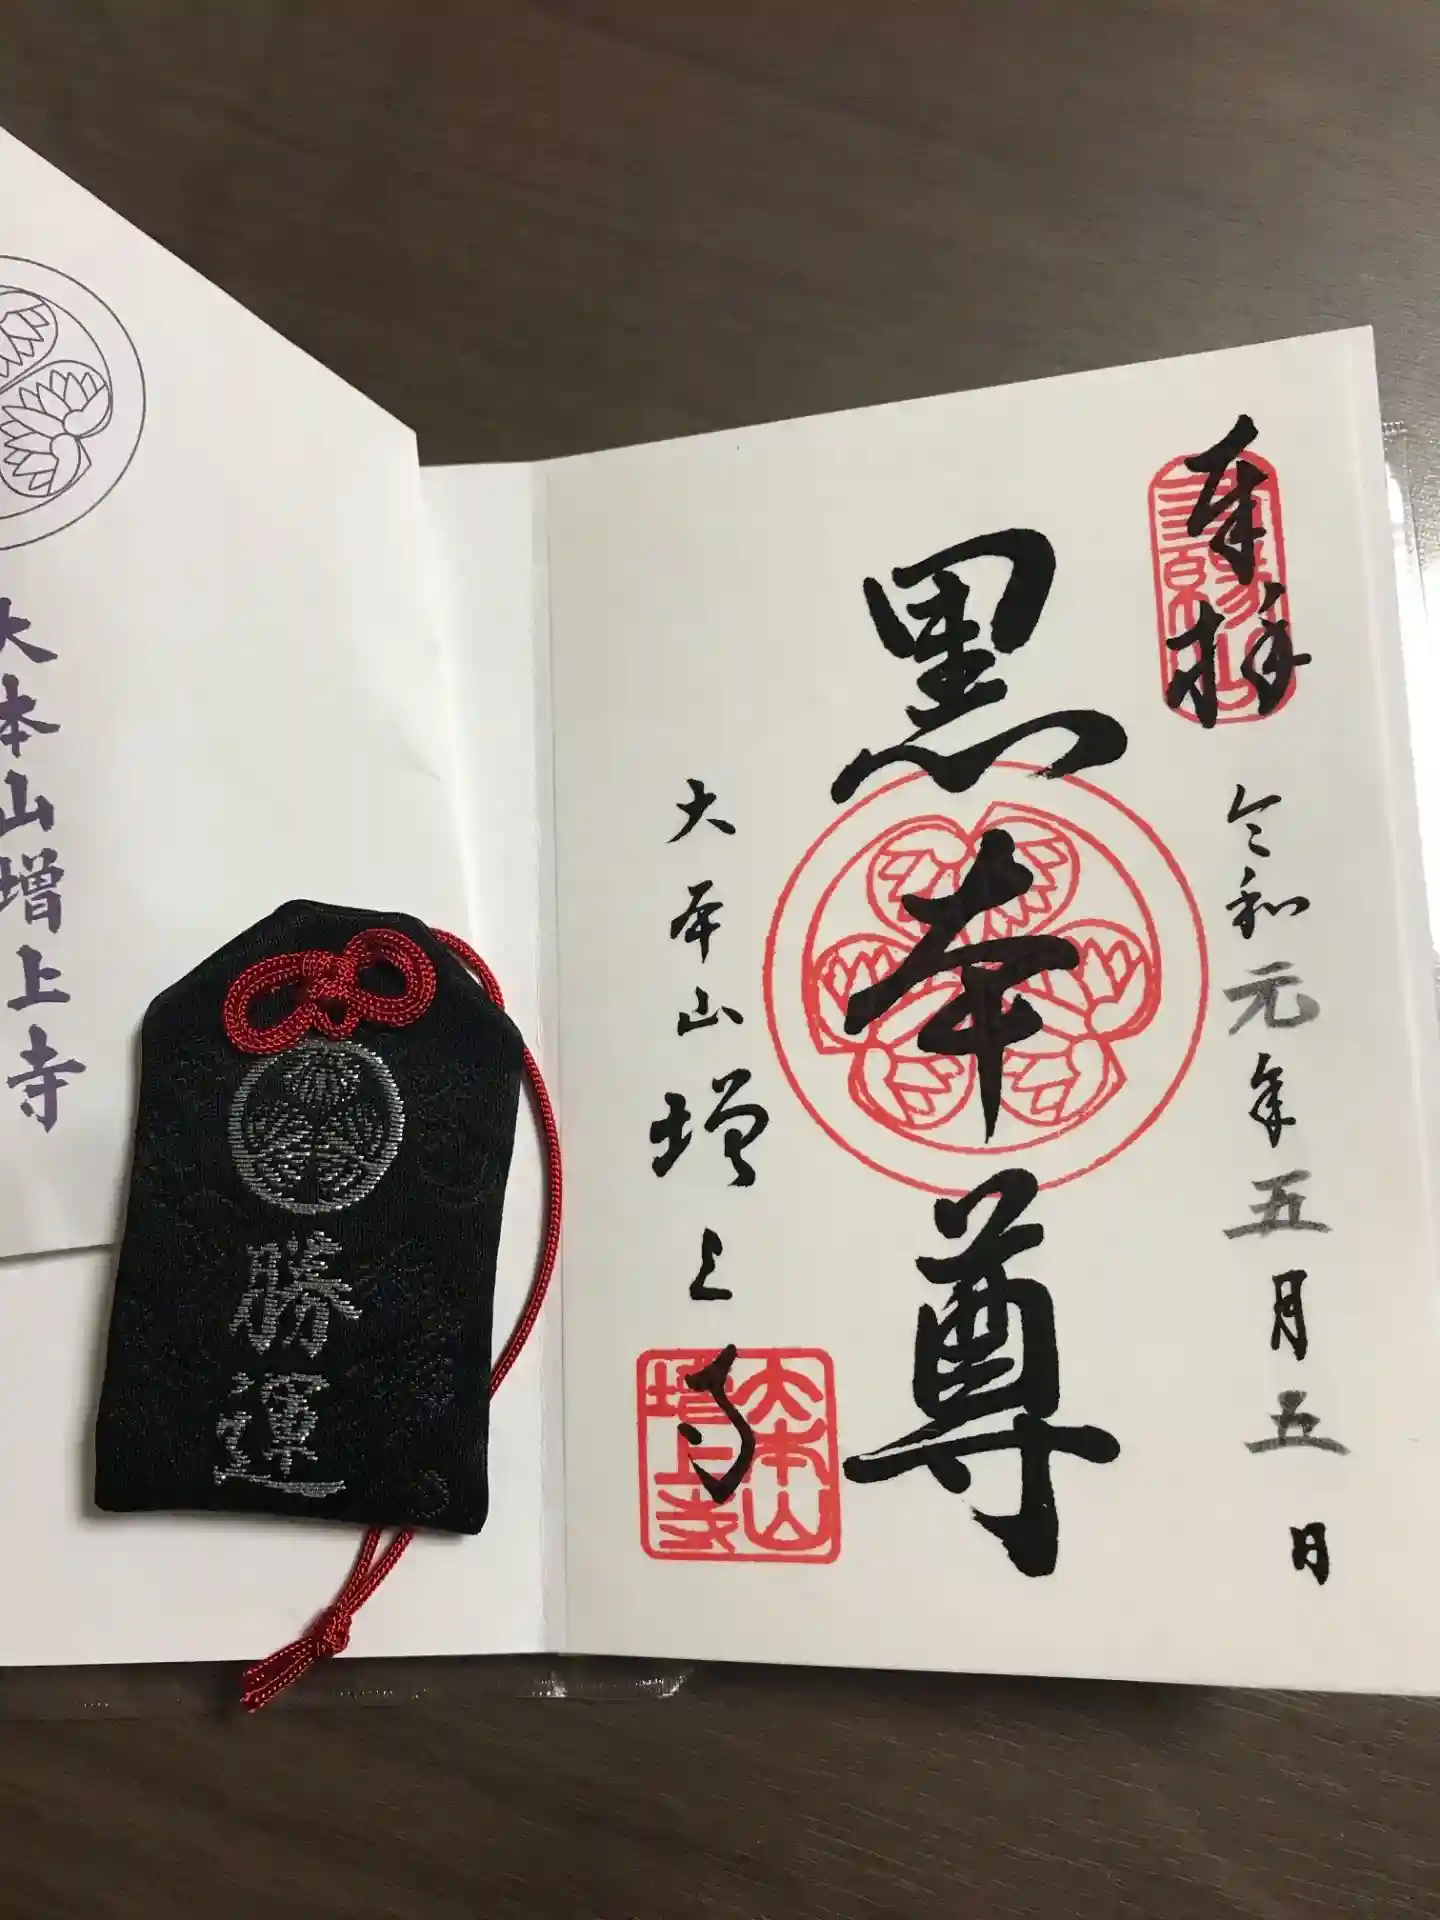 奉拝
三縁山
令和元年五月五日
黒本尊
大本山増上寺
大本山
増上寺
大本山増上寺
勝運